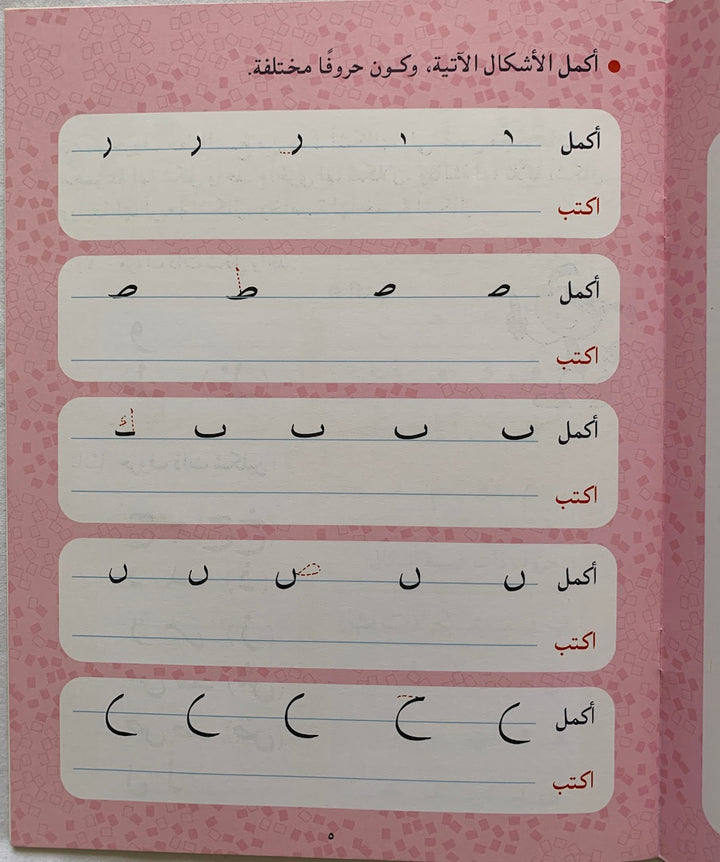 أكمل الأشكال الآتية، وكـون حروفًا مختلفة.
أكمل ١ ١ ر ر ر
اكتب
أكمل صـ صـ ط صـ
اكتب
أكمل ٮ ٮ ٮ ٮ ك
اكتب
أكمل ں ں ص ں ں
اكتب
أكمل ح ح ح ح ح
اكتب
٥